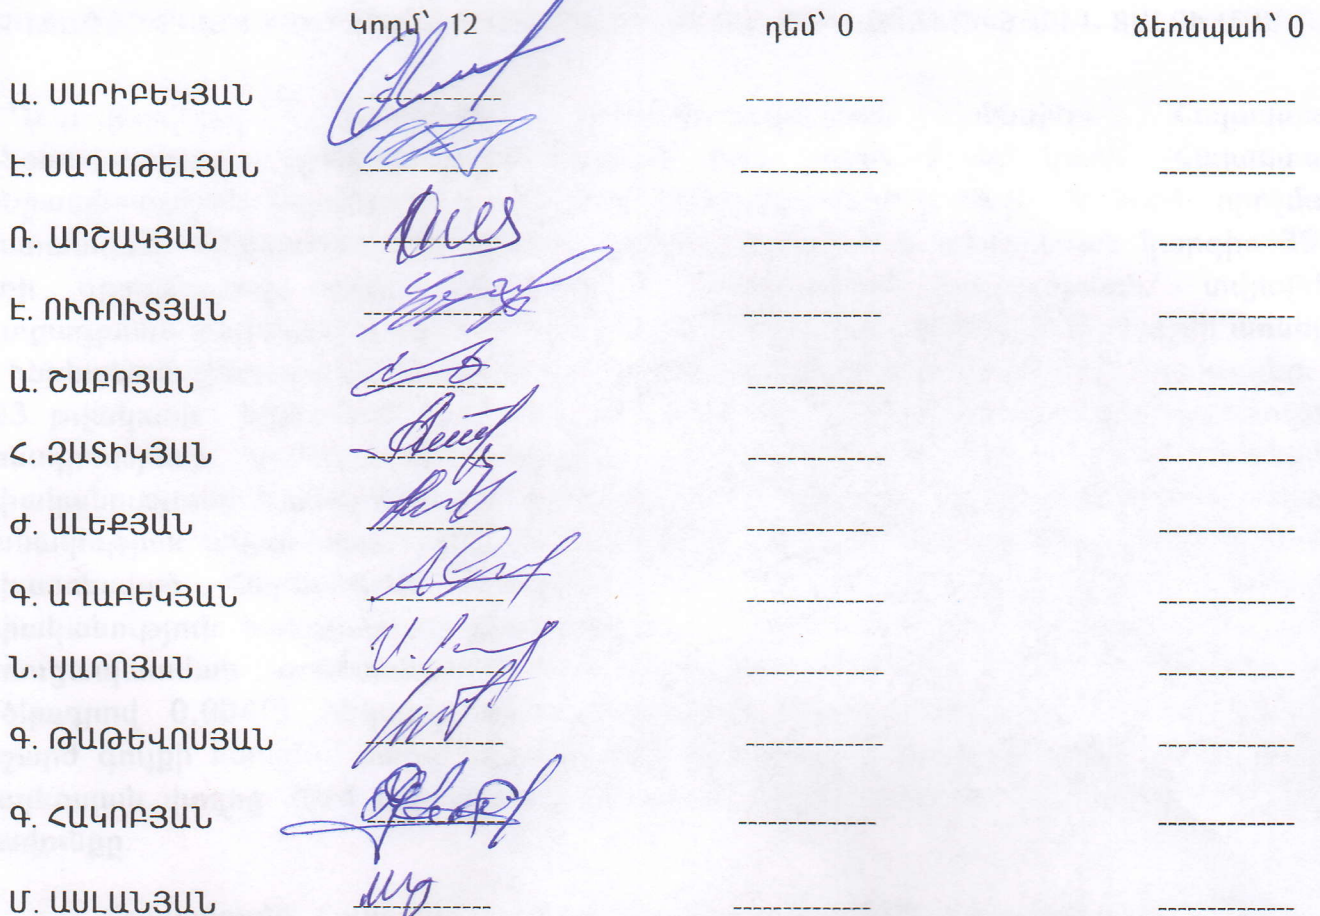 Կողմ՝ 12 դեմ՝ 0 ձեռնպահ՝ 0
Ա. ՍԱՐԻԲԵԿՅԱՆ
Է. ՍԱՂԱԹԵԼՅԱՆ
Ռ. ԱՐՇԱԿՅԱՆ
Է. ՈՒՌՈՒՏՅԱՆ
Ա. ՇԱԲՈՅԱՆ
Հ. ԶԱՏԻԿՅԱՆ
Ժ. ԱԼԵՔՅԱՆ
Գ. ԱՂԱԲԵԿՅԱՆ
Ն. ՍԱՐՈՅԱՆ
Գ. ԹԱԹԵՎՈՍՅԱՆ
Գ. ՀԱԿՈԲՅԱՆ
Մ. ԱՍԼԱՆՅԱՆ